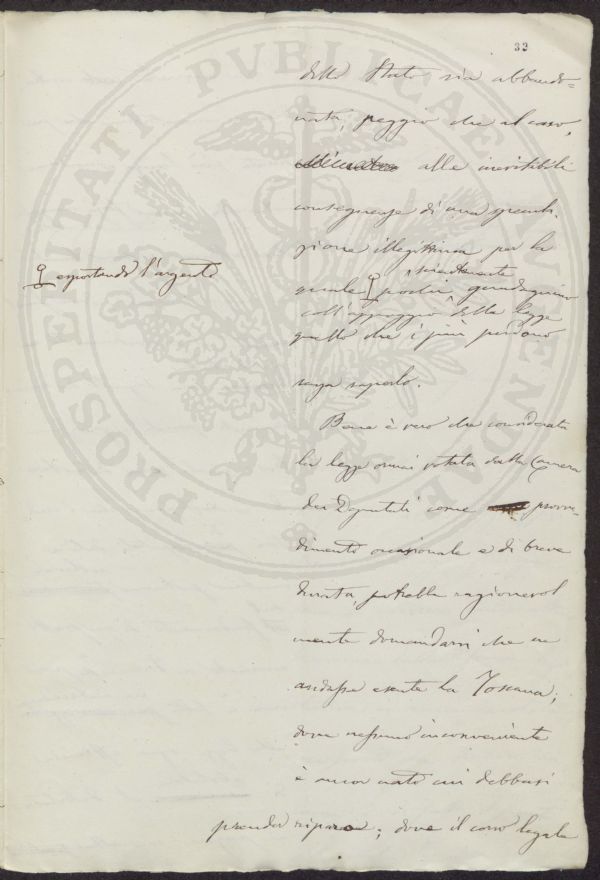 33
dello Stato sia abbando=
nata, peggio che al caso,
alle inevitabili
conseguenze di una specula
zione illegittima per la
quale ϙ pochi, guadagnino
coll'appoggio della legge
quello che i più perdono
senza saperlo.
ϙ esportando l'argento
Bene è vero che considerata
la legge omai votata dalla Camera
dei Deputati come provve=
dimento occasionale e di breve
durata, potrebbe ragionevol
mente domandarsi che ne
andasse esente la Toscana;
dove nessuno inconveniente
è ancor nato cui debbasi
prender riparo; dove il corso legale
PROSPERITATI PVBLICAE AVGENDAE